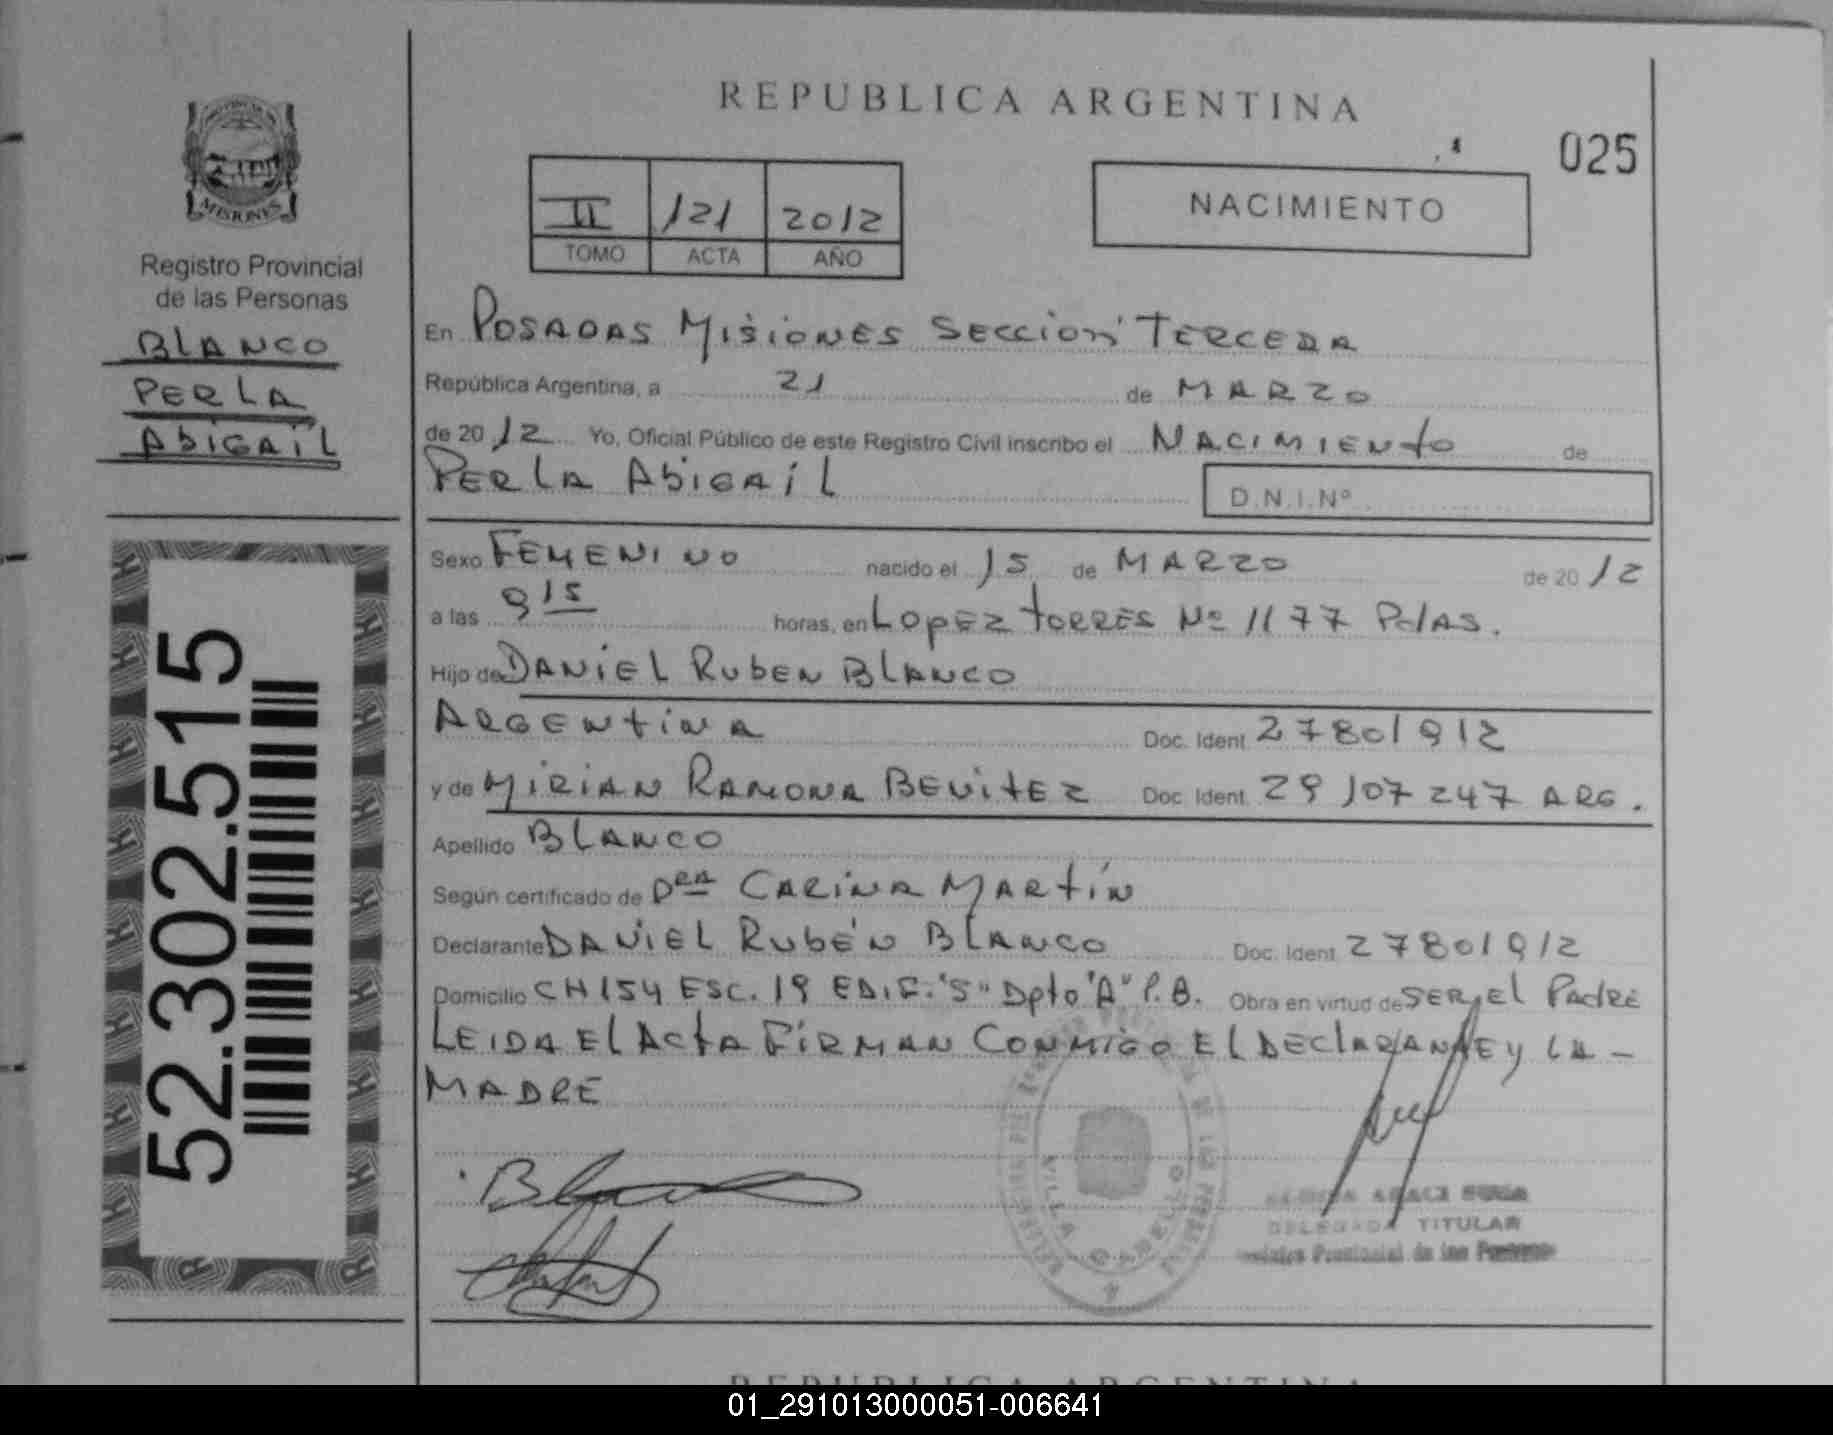 REPUBLICA ARGENTINA
025
NACIMIENTO
II 121 2012
TOMO ACTA AÑO
MISIONES
Registro Provincial
de las Personas
BLANCO
PERLA
ABIGAIL
52.302.515
En POSADAS MISIONES SECCION TERCERA
República Argentina, a 21 de MARZO
de 2012 Yo, Oficial Público de este Registro Civil inscribo el NACIMIENTO de
PERLA ABIGAIL D.N.I.Nº
Sexo FEMENINO nacido el 15 de MARZO de 2012
a las 9 15 horas, en LOPEZ TORRES Nº 1177 Pdas.
Hijo de DANIEL RUBEN BLANCO
ARGENTINA Doc. Ident. 27801912
y de MIRIAN RAMONA BENITEZ Doc. Ident. 29107247 ARG.
Apellido BLANCO
Según certificado de Dra CARINA MARTÍN
Declarante DANIEL RUBÉN BLANCO Doc. Ident. 27801912
Domicilio CH 154 ESC. 19 EDIF. "S" Dpto "A" P.B. Obra en virtud de SER EL PADRE
LEIDA EL ACTA FIRMAN CONMIGO EL DECLARANTE Y LA -
MADRE
VILLA CABELLO
DELEGADA TITULAR
Provincial de las Personas
REPUBLICA ARGENTINA
01_291013000051-006641